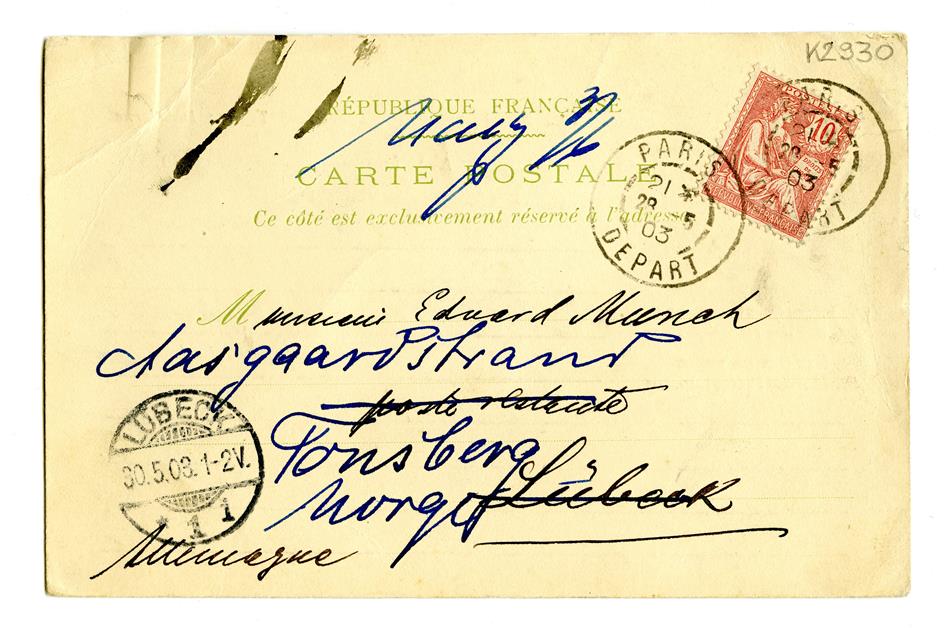 K2930
RÉPUBLIQUE FRANÇAISE
CARTE POSTALE
Ce côté est exclusivement réservé à l'adresse
PARIS
21
28 5
03
DEPART
POSTES
10
PARIS
21
28 5
03
DEPART
Monsieur Edvard Munch
Aasgaardstrand
poste restante
Tonsberg
Norge
Lübeck
Allemagne
LÜBECK
30.5.03.1-2V.
1